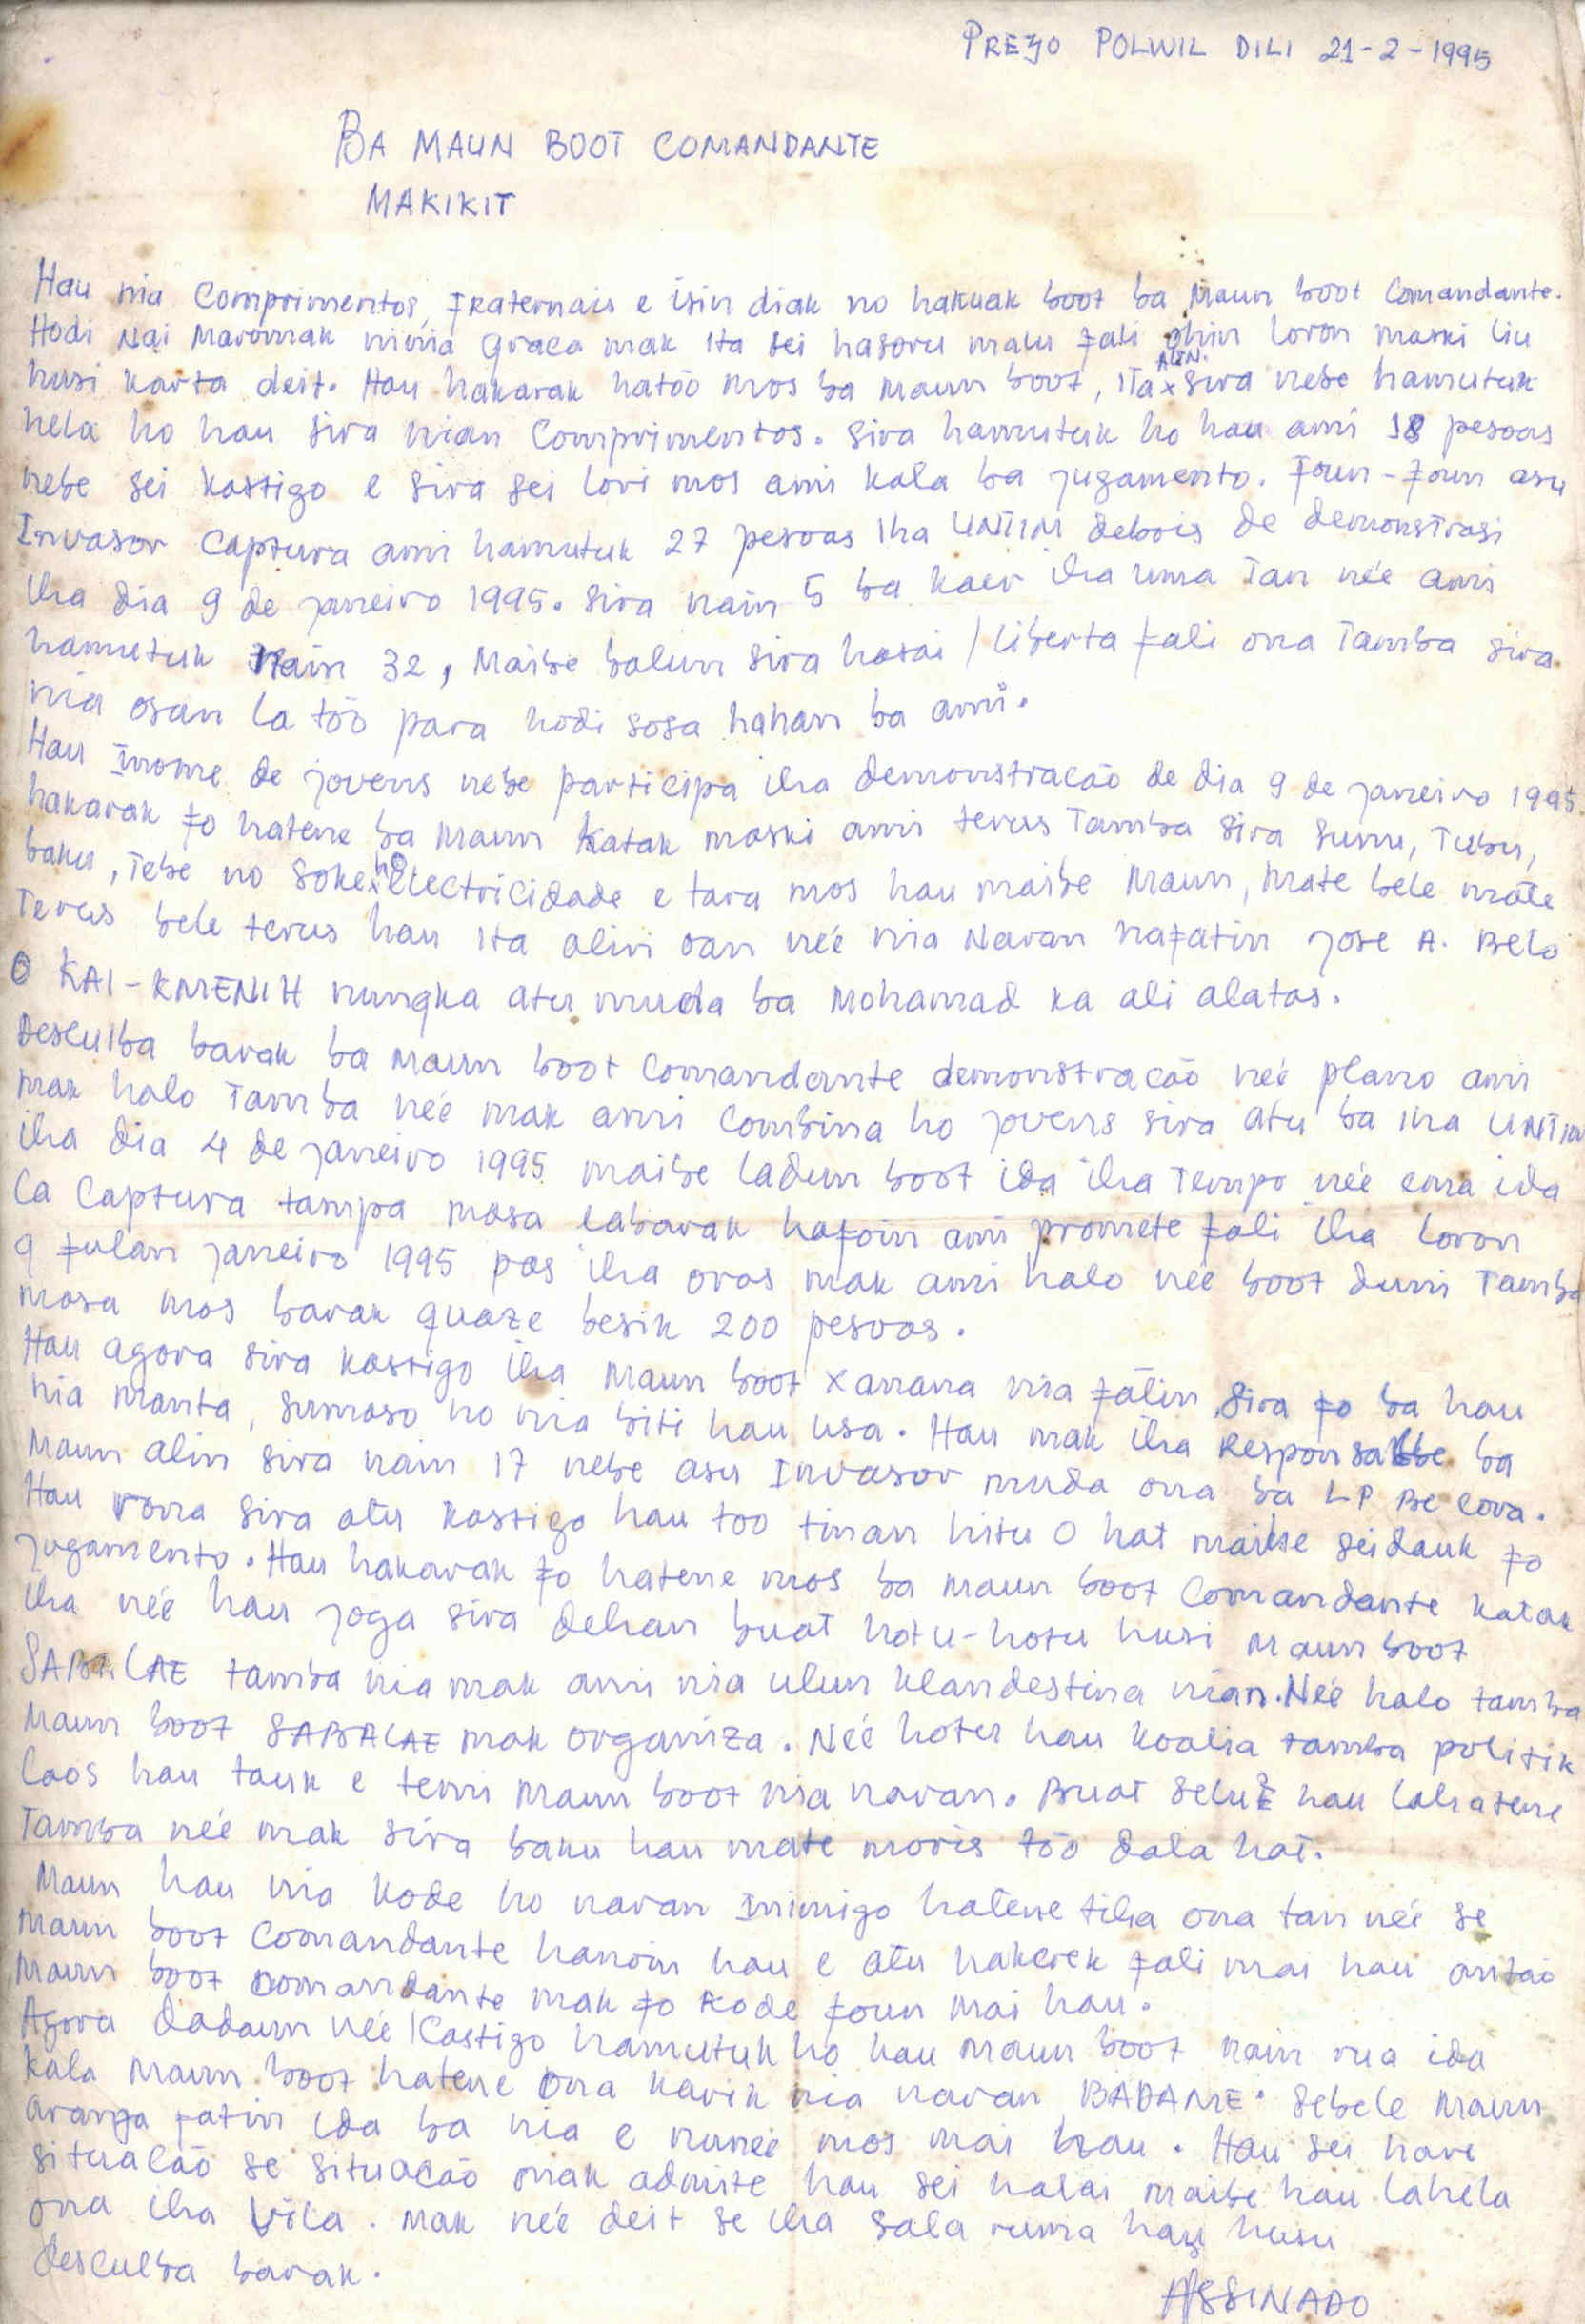 PREZO POLWIL DILI 21-2-1995
BA MAUN BOOT COMANDANTE
MAKIKIT
Hau nia Comprimentos, Fraternais e isin diak no hakuak boot ba Maun boot Comandante.
Hodi Nai Maromak ninia graca mak ita sei hasoru malu fali ohin loron maski liu
husi karta deit. Hau hakarak hatöo mos ba Maun boot, ita x ALIN. sira nebe hamutuk
hela ho hau sira nian Comprimentos. Sira hamutuk ho hau ami 18 pesoas
nebe sei kastigo e sira sei lori mos ami kala ba jugamento. Foun-foun asu
Invasor Captura ami hamutuk 27 pesoas iha UNTIM debois de demonstrasi
iha dia 9 de janeiro 1995. Sira nain 5 ba kaer iha uma Tan neé ami
hamutuk Nain 32, Maibe balun sira hasai / liberta fali ona Tamba sira
nia osan la töo para hodi sosa hahan ba ami.
Hau Inome de jovens nebe participa iha demonstracão de dia 9 de janeiro 1995.
hakarak fo hatene ba Maun katak maski ami terus Tamba sira sunu, Tubu,
baku, Tebe no Soke x ho electricidade e tara mos hau maibe Maun, Mate bele mate
Terus bele terus hau ita alin oan neé nia Naran nafatin Jose A. Belo
O KAI-KMENIH nungka atu muda ba Mohamad ka ali alatas.
Desculba barak ba Maun boot Comandante demonstracão neé plano ami
mak halo Tamba neé mak ami Combina ho jovens sira atu ba iha UNTIM
iha dia 4 de janeiro 1995 maibe ladun boot ida iha Tempo neé ema ida
la Captura tampa masa labarak hafoin ami promete fali iha loron
9 fulan janeiro 1995 pas iha oras mak ami halo neé boot duni Tamba
masa mos barak quaze besik 200 pesoas.
Hau agora sira kastigo iha Maun boot Xanana nia fatin sira fo ba hau
nia manta, sumaso no nia biti hau usa. Hau mak iha Responsalbe ba
Maun alin sira nain 17 nebe asu Invasor muda ona ba LP Be Cora.
Hau rona sira atu kastigo hau too tinan hitu O hat maibe seidauk fo
jugamento. Hau hakarak fo hatene mos ba Maun boot Comandante katak
iha neé hau joga sira dehan buat hotu-hotu husi Maun boot
SABALAE tamba nia mak ami nia ulun klandestina nian. Neé halo tamba
Maun boot SABALAE mak organiza. Neé hotu hau koalia tamba politik
laos hau tauk e temi Maun boot nia naran. Buat seluk hau lahatene
Tamba neé mak sira baku hau mate moris töo dala hat.
Maun hau nia kode ho naran Inimigo hatene tiha ona tan neé se
Maun boot Comandante hanoin hau e atu hakerek fali mai hau antão
Maun boot Comandante mak fo kode foun mai hau.
Agora dadaun neé Kastigo hamutuk ho hau Maun boot nain rua ida
kala Maun boot hatene ona karik nia naran BADAME. Sebele Maun
aranja fatin ida ba nia e nuneé mos mai hau. Hau sei hare
situacão se situacão mak admite hau sei halai maibe hau lahela
ona iha Vila. Mak neé deit se iha sala ruma hau husu
desculba barak.
ASSINADO